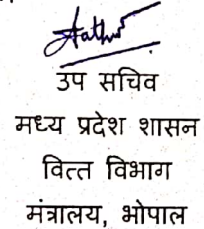 उप सचिव
मध्य प्रदेश शासन
वित्त विभाग
मंत्रालय, भोपाल